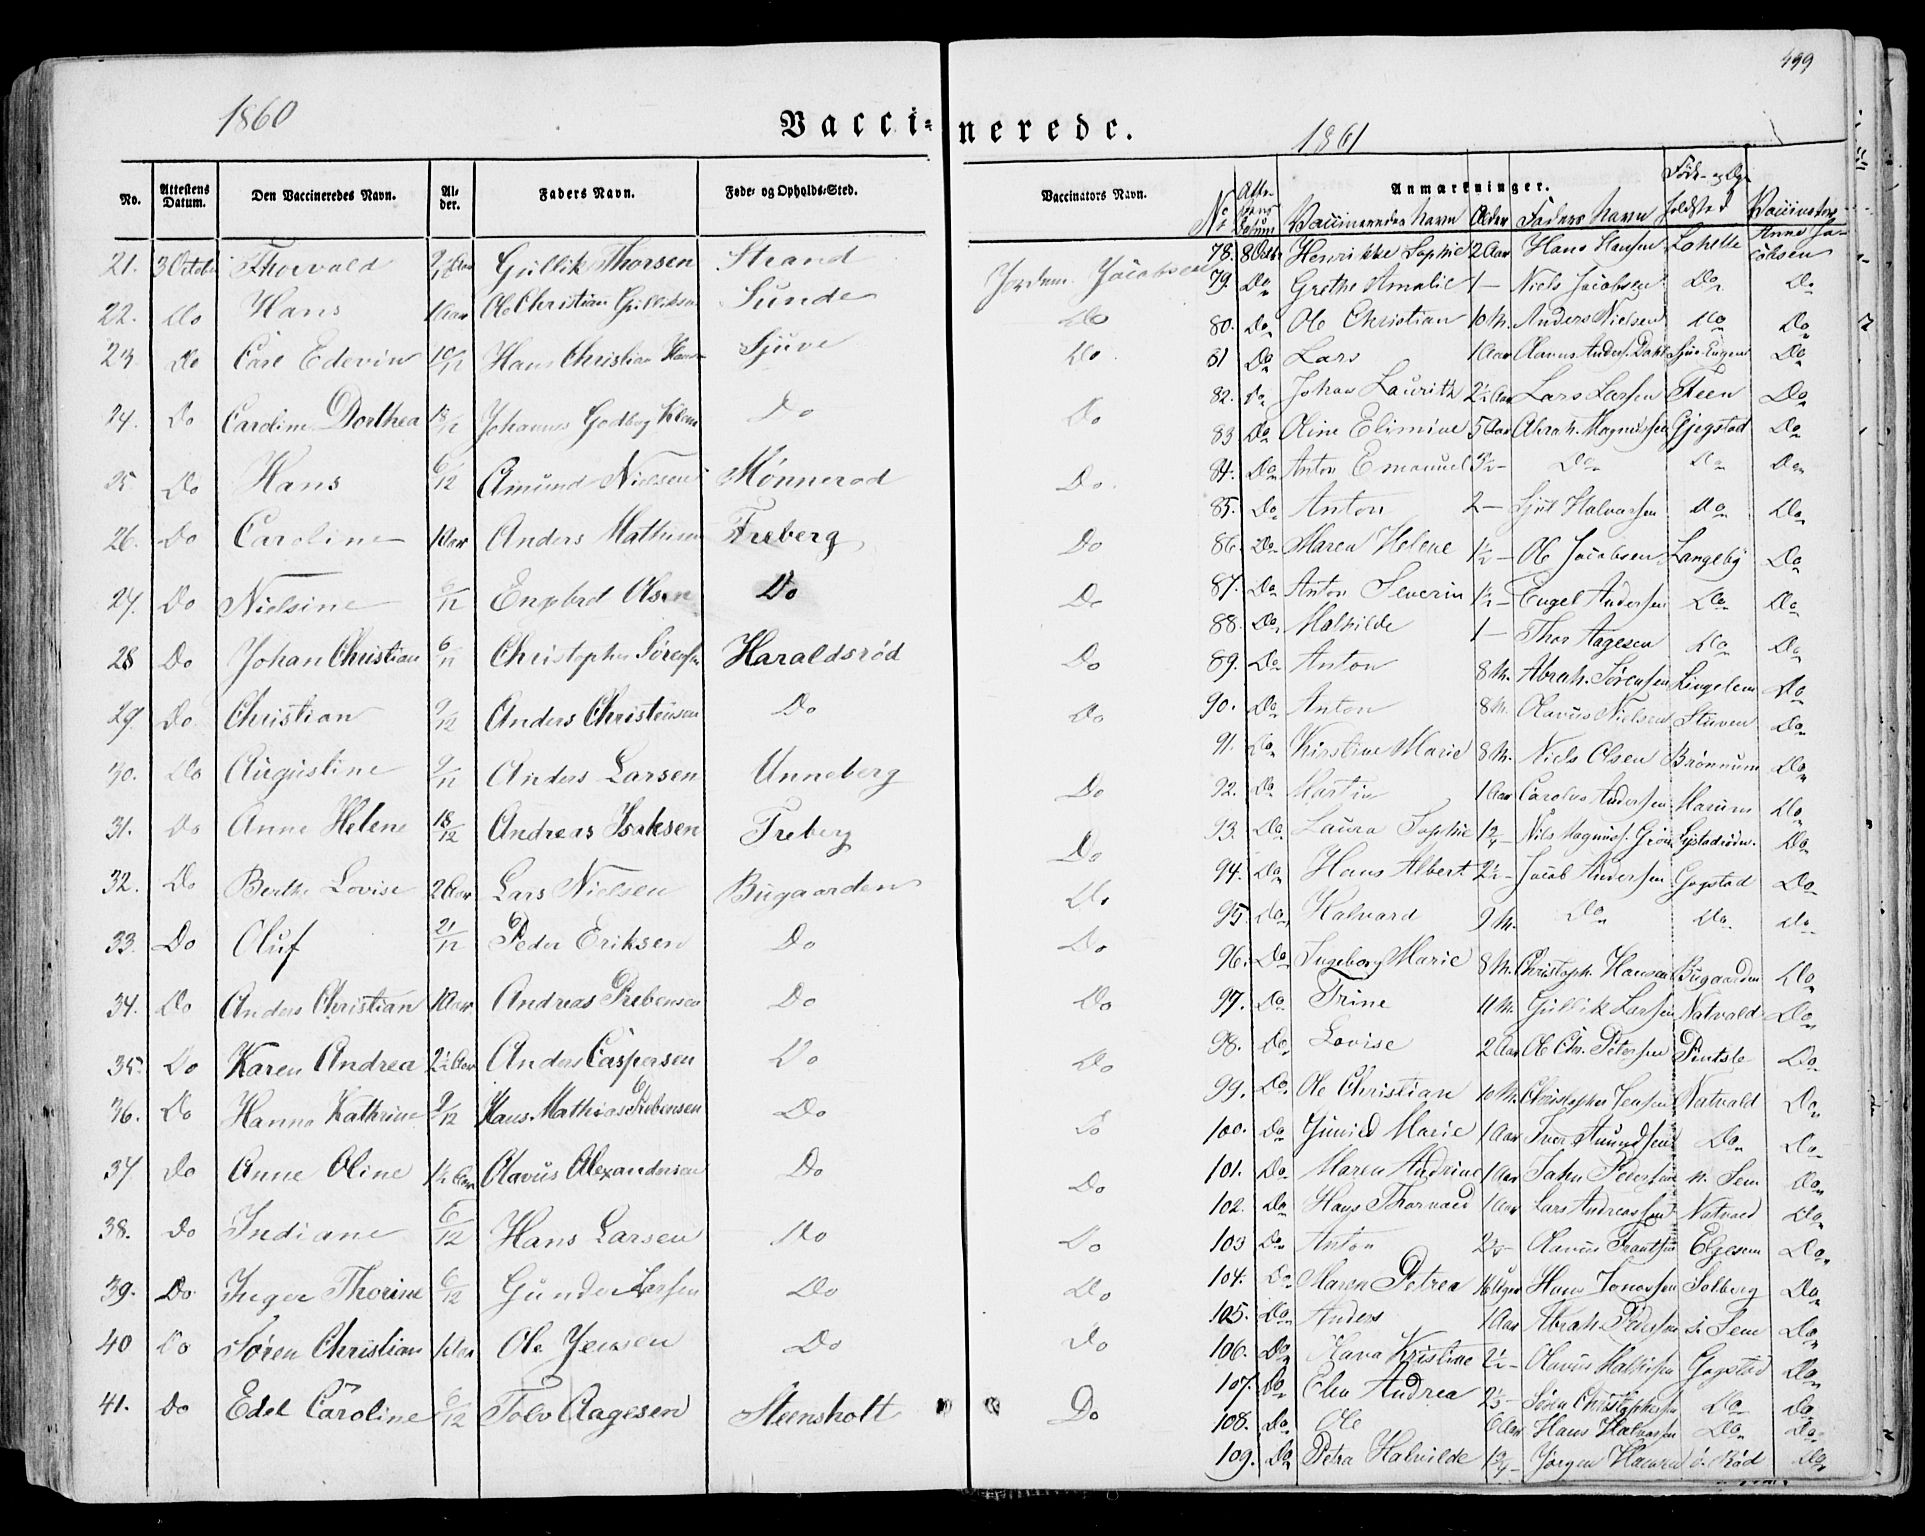 499
1860
Vaccinerede.
1861
No. Attestens Datum. Den Vaccineredes Navn. Alder. Faders Navn. Føde- og Opholds-Sted. Vaccinators Navn. Anmærkninger.
21. 3 Octob Thorvald Gullik Thorsen Strand Jordem. Jacobsen
22. Do Hans 1 Aar Ole Christian Sunde Do
23 Do Carl Edevin 10/12 Hans Christian Hansen Sjuve Do
24. Do Caroline Dorthea 18/12 Johannes Do Do
25 Do Hans 6/12 Amund Nielsen Mønnerød Do
26. Do Caroline 1 Aar Anders Mathisen Freberg Do
27. Do Nielsine Engebret Olsen Do Do
28 Do Johan Christian 6/12 Christopher Sørensen Haraldsrød Do
29. Do Christian 9/12 Anders Christensen Do Do
30. Do Augustine 9/12 Anders Larsen Unneberg Do
31. Do Anne Helene 18/12 Andreas Isaksen Freberg Do
32. Do Berthe Lovise 2 Aar Lars Nielsen Bugaarden Do
33. Do Oluf 21/12 Peder Eriksen Do Do
34. Do Anders Christian 1 Aar Andreas Prebensen Do Do
35. Do Karen Andrea 2½ Aar Anders Caspersen Do Do
36. Do Hanna Kathrine 9/12 Hans Mathias Prebensen Do Do
37 Do Anne Oline 1½ Aar Olavus Alexandersen Do Do
38. Do Indiane 6/12 Hans Larsen Do Do
39. Do Inger Thorine 6/12 Gunder Larsen Do Do
40 Do Søren Christian 1 Aar Ole Jensen Do Do
41. Do Edel Caroline 6/12 Tolv Aagesen Steensholt Do
No Attestens Datum Vaccineredes Navn Alder Faders Navn Føde- og Opholdsted Vaccinators
78. 8 Octbr Henrikke Sophie 2 Aar Hans Hansen Lohelle Anne Jacobsen
79. Do Grethe Amalie 1 — Niels Jacobsen Do Do
80. Do Ole Christian 10 M. Anders Nielsen Do Do
81 Do Lars 1 Aar Olavus Anders. Dahl Do
82. Do Johan Lauritz 2½ Aar Lars Larsen Steen Do
83 Do Oline Elimine 5 Aar Abrah. Magnussen Gjegstad Do
84. Do Anton Emanuel Do Do Do
85. Do Anton 2 — Halvorsen Do Do
86. Do Maren Helene 1½ — Ole Jacobsen Langeby Do
87. Do Anton Severin 1½ — Engel Andersen Do Do
88. Do Mathilde 1 — Thor Aagesen Do Do
89. Do Anton 8 M. Abrah. Sørensen Lingelem Do
90. Do Anton 8 M. Olavus Nielsen Stuven Do
91. Do Kirstine Marie 8 M. Niels Olsen Brønnum Do
92. Do Martin 1 Aar Carolus Andersen Marum Do
93. Do Laura Sophie Nils Magnuss. Do
94. Do Hans Albert 2½ — Jacob Andersen Gogstad Do
95 Do Halvard 9 M. Do Do Do
96. Do Ingeborg Marie 8 M. Christoph. Hansen Bugaarden Do
97. Do Trine 11 M. Gullik Larsen Natvald Do
98. Do Lovise 2 Aar Ole Chr. Petersen Pintsle Do
99. Do Ole Christian 10 M. Christopher Jensen Natvald Do
100. Do Gunild Marie 1 Aar Iver Amundsen Do Do
101. Do Maren Andrine 1 Aar John Pedersen n. Sem Do
102. Do Hans Thorvald 1 Aar Lars Andreassen Natvald Do
103 Do Anton Olavus Frantsen Elgesem Do
104. Do Maren Petrea Hans Jonassen Solberg Do
105. Do Anders 1 Aar Abrah. Pedersen s. Sem Do
106. Do Hana Kristine 2½ — Olavus Mathisen Gogstad Do
107. Do Elen Andrea Søren Christophersen Do Do
108. Do Ole 6 Aar Hans Halvorsen Do Do
109. Do Petra Halvilde Jørgen ø. Rød Do